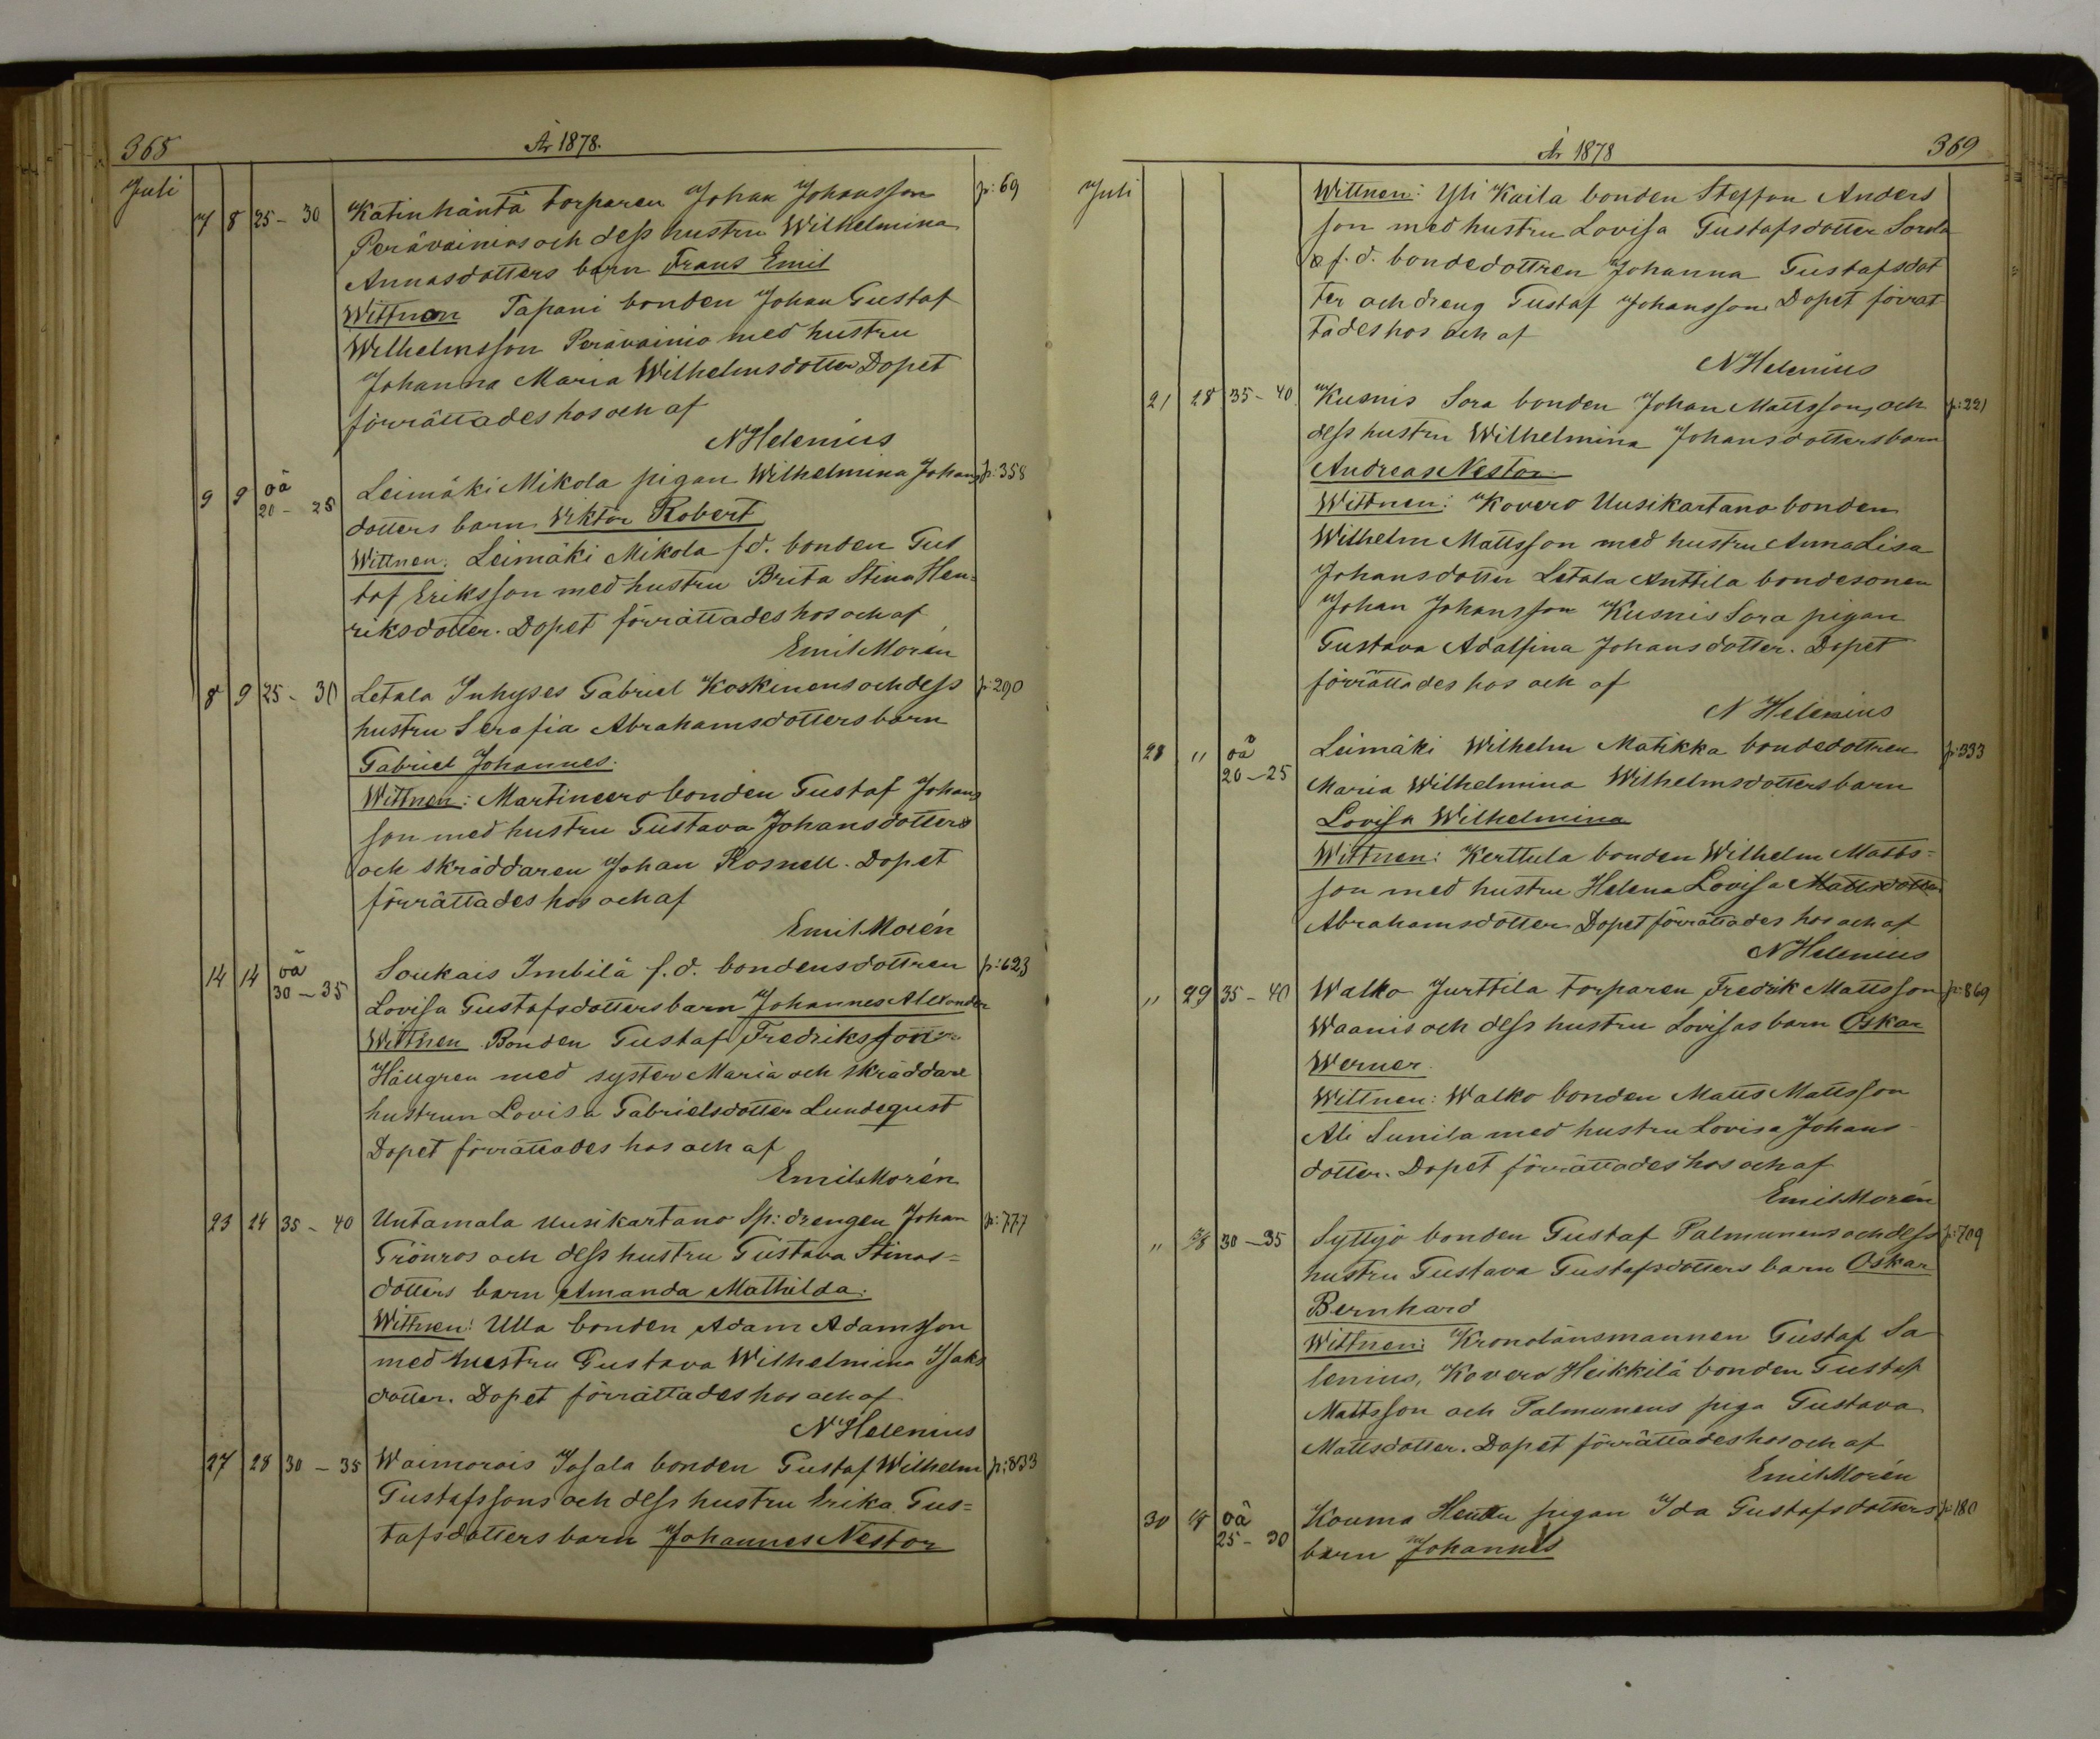 368
År 1878.
Juli
7 8 25-30 Katinhänta torparen Johan Johansson p: 69
Perävainios och dess hustru Wilhelmina
Annasdotters barn Frans Emil
Wittnen Tapani bonden Johan Gustaf
Wilhelmsson Perävainio med hustru
Johanna Maria Wilhelmsdotter Dopet
förrättades hos och af
N Helenius
9 9 oä 20-25 Leimäki Mikola pigan Wilhelmina Johans p: 358
dotters barn Viktor Robert
Wittnen: Leimäki Mikola fd. bonden Gus
taf Eriksson med hustru Brita Stina Hen=
riksdotter. Dopet förrättades hos och af
Emil Morén
8 9 25-30 Letala Inhyses Gabriel Koskinens och dess p: 290
hustru Serafia Abrahamsdotters barn
Gabriel Johannes.
Wittnen: Martincero bonden Gustaf Johans
son med hustru Gustava Johansdotter
och skräddaren Johan Rosnell. Dopet
förrättades hos och af
Emil Morén
14 14 oä 30-35 Soukais Imbilä f.d. bondensdottren p: 623
Lovisa Gustafsdotters barn Johannes Alexander
Wittnen Bonden Gustaf Fredriksson
Hällgren med syster Maria och skräddare
hustrun Lovisa Gabrielsdotter Lundequst
Dopet förrättades hos och af
Emil Morén
23 24 35-40 Untamala Uusikartano Sp: drengen Johan p: 777
Grönros och dess hustru Gustava Stinas=
dotters barn Amanda Mathilda.
Wittnen: Ulla bonden Adam Adamsson
med hustru Gustava Wilhelmina Isaks
dotter. Dopet förrättades hos och af
N Helenius
27 28 30-35 Waimorois Jasala bonden Gustaf Wilhelm p: 833
Gustafssons och dess hustru Erika Gus=
tafsdotters barn Johannes Nestor
År 1878
369
Juli
Wittnen: Yli Kaila bonden Steffan Anders
son med hustru Lovisa Gustafsdotter Sorola
f.d. bondedottren Johanna Gustafsdot
ter och dreng Gustaf Johansson Dopet förrät
tades hos och af
N Helenius
21 28 35-40 Kusnis Sora bonden Johan Mattssons och p: 221
dess hustru Wilhelmina Johansdotters barn
Andreas Nestor
Wittnen: Kovero Uusikartano bonden
Wilhelm Mattsson med hustru Anna Lisa
Johansdotter Letala Anttila bondesonen
Johan Johansson Kusnis Sora pigan
Gustava Adalfina Johansdotter. Dopet
förrättades hos och af
N Helenius
28 " oä 20-25 Leimäki Wilhelm Matikka bondedottren p: 333
Maria Wilhelmina Wilhelmsdotters barn
Lovisa Wilhelmina
Wittnen: Kerttula bonden Wilhelm Matts=
son med hustru Helena Lovisa Mattsdotter
Abrahamsdotter Dopet förrättades hos och af
N Helenius
" 29 35-40 Walko Jurttila torparen Fredrik Mattsson p: 869
Waanis och dess hustru Lovisas barn Oskar
Werner.
Wittnen: Walko bonden Matts Mattsson
Ali Sunila med hustru Lovisa Johans
dotter. Dopet förrättades hos och af
Emil Morén
" 1/8 30-35 Syttyjö bonden Gustaf Palmunens och dess p: 709
hustru Gustava Gustafsdotters barn Oskar
Bernhard
Wittnen: Kronolänsmannen Gustaf Sa
lenius, Kovero Heikkilä bonden Gustaf
Mattsson och Palmunens piga Gustava
Mattsdotter. Dopet förrättades hos och af
Emil Morén
30 1/8 oä 25-30 Kouma Henttu pigan Ida Gustafsdotters p: 180
barn Johannes